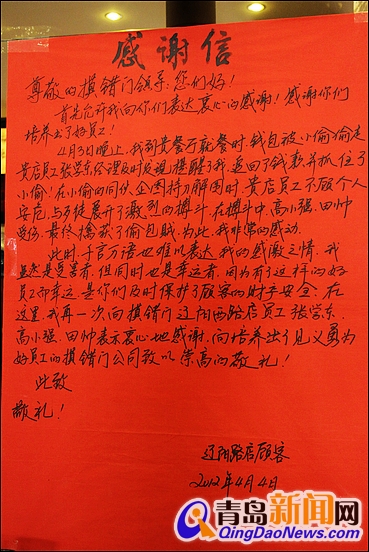 感谢信
尊敬的摸错门领导：您们好！
首先允许我向你们表达衷心的感谢！感谢你们
培养出了好员工！
4月3日晚上，我到贵餐厅就餐时，钱包被小偷偷走
贵店员工张学东经理及时发现提醒了我，返回了钱款并抓住了
小偷！在小偷的同伙企图持刀解围时，贵店员工不顾个人
安危，与歹徒展开了激烈的搏斗，在搏斗中，高小强、田帅
受伤，最终擒获了偷包贼，为此，我非常的感动。
此时，千言万语也难以表达我的感激之情，我
虽然是受害者，但同时也是幸运者，因为有了这样的好
员工而幸运，是你们及时保护了顾客的财产安全，在
这里，我再一次向摸错门辽阳西路店员工张学东、
高小强、田帅表示衷心地感谢，向培养出了见义勇为
好员工的摸错门公司致以崇高的敬礼！
此致
敬礼！
辽阳路店顾客
2012年4月4日
青岛新闻网
QingDaoNews.com